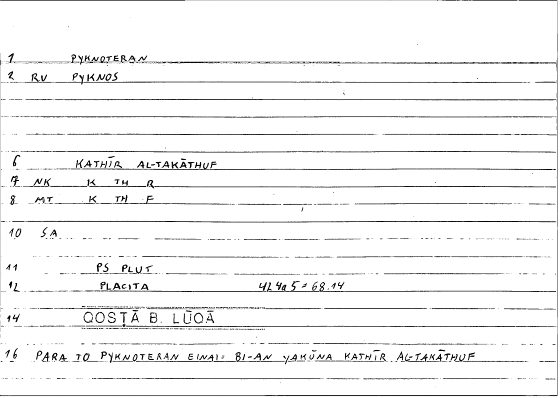 1 PYKNOTERAN
2 RV PYKNOS
6 KATHĪR AL-TAKĀTHUF
7 NK K TH R
8 MT K TH F
10 SA
11 PS PLUT
12 PLACITA 424a5=68.14
14 QOSṬĀ B. LŪQĀ
16 PARA TO PYKNOTERAN EINAI= BI-AN YAKŪNA KATHĪR AL-TAKĀTHUF